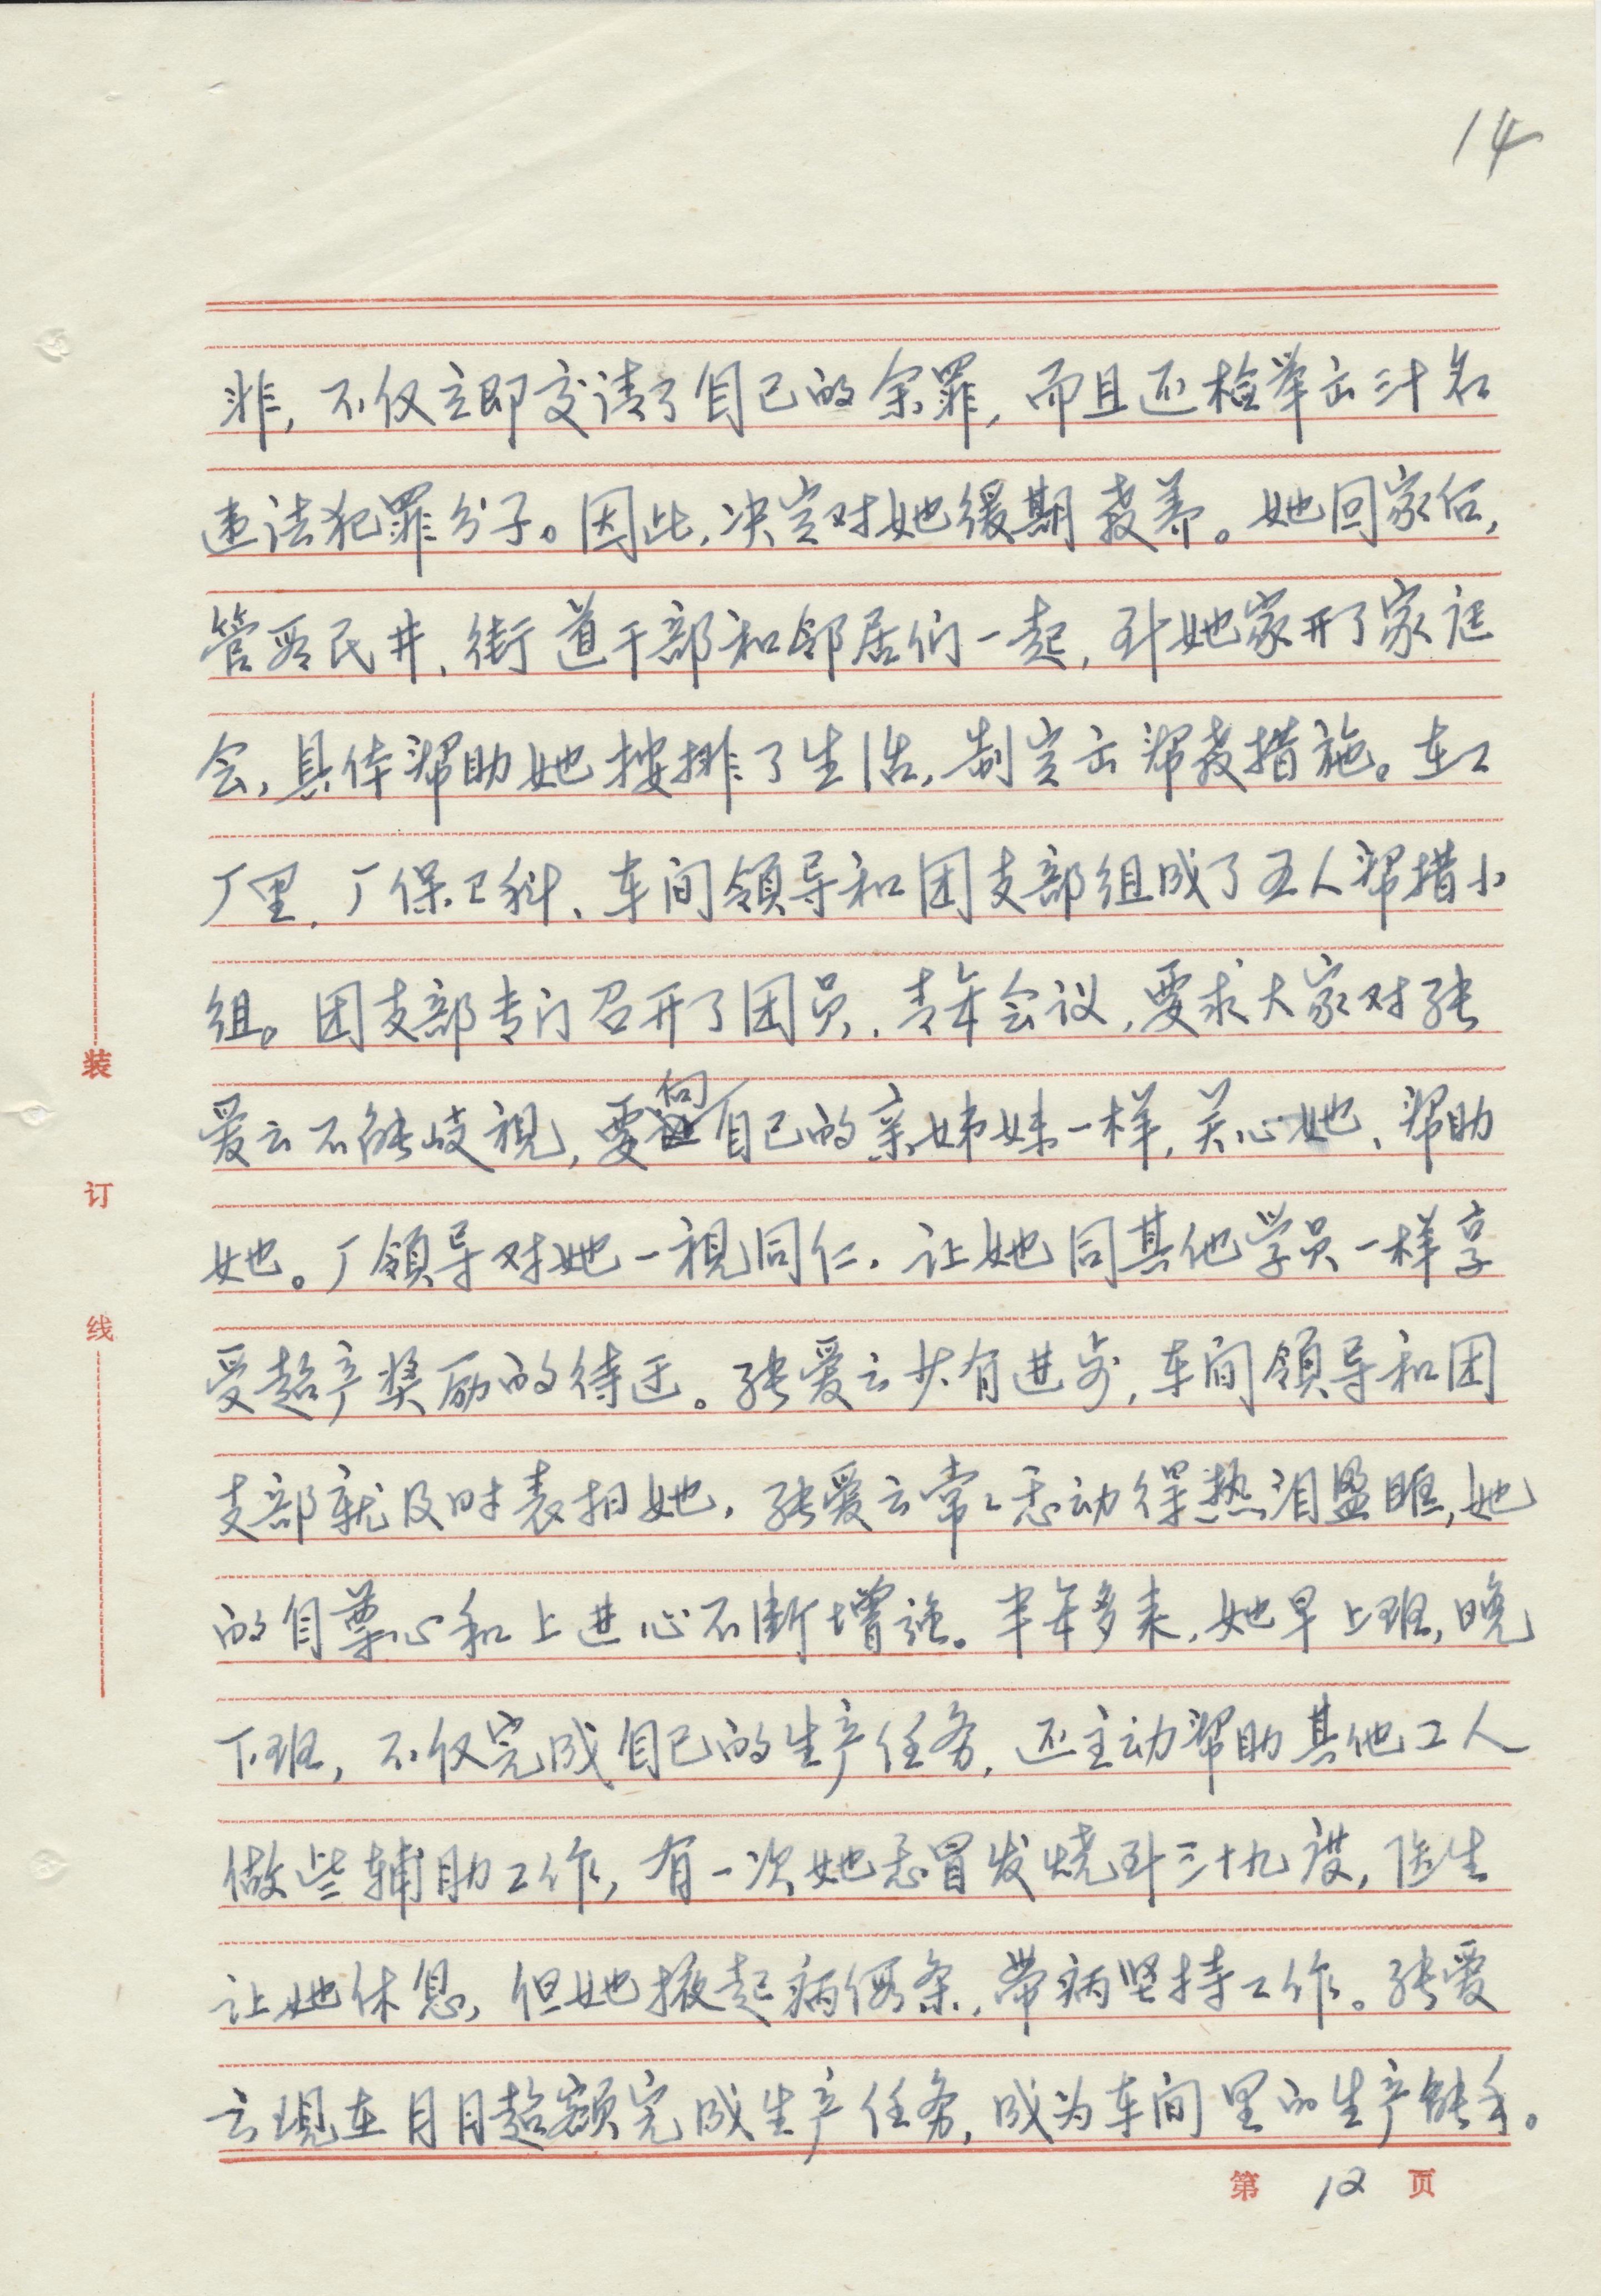 14
非，不仅立即交清了自己的余罪，而且还检举出三十名
违法犯罪分子。因此，决定对她缓期教养。她回家后，
管段民井，街道干部和邻居们一起，到她家开了家庭
会，具体帮助她按排了生活，制定出帮教措施。在工
厂里，厂保卫科、车间领导和团支部组成了五人帮措小
组。团支部专门召开了团员、青年会议，要求大家对张
爱云不能歧视，要向自己的亲姊妹一样，关心她、帮助
她。厂领导对她一视同仁，让她同其他学员一样享
受超产奖励的待迂。张爱云少有进步，车间领导和团
支部就及时表扬她，张爱云常々感动得热泪盈眶，她
的自尊心和上进心不断增强。半年多来，她早上班，晚
下班，不仅完成自己的生产任务，还主动帮助其他工人
做些辅助工作，有一次她感冒发烧到三十九度，医生
让她休息，但她掖起病假条，带病坚持工作。张爱
云现在月月超额完成生产任务，成为车间里的生产能手。
装
订
线
第 12 页